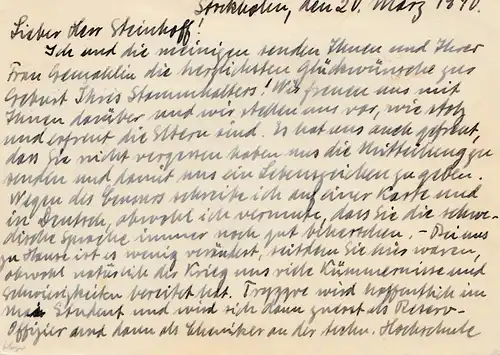 Stockholm, den 20. März 1940.
Lieber Herr Steinhoff!
Ich und die meinigen senden Ihnen und Ihrer
Frau Gemahlin die herzlichsten Glückwünsche zur
Geburt Ihres Stammhalters! Wir freuen uns mit
Ihnen darüber und wir stellen uns vor, wie stolz
und erfreut die Eltern sind. Es hat uns auch gefreut,
dass Sie nicht vergessen haben uns die Mitteilung zu
senden und damit uns ein Lebenszeichen zu geben.
Wegen des Censors schreibe ich auf einer Karte und
in Deutsch, obwohl ich vermute, dass Sie die schwe-
dische Sprache immer noch gut beherrschen. - Bei uns
zu Hause ist es wenig verändert, seitdem Sie hier waren,
obwohl natürlich der Krieg uns viele Kümmernisse und
Schwierigkeiten bereitet hat. wird hoffentlich im
Mai Student und wird sich dann zuerst als Reserv-
Offizier und dann als Chemiker an der techn. Hochschule